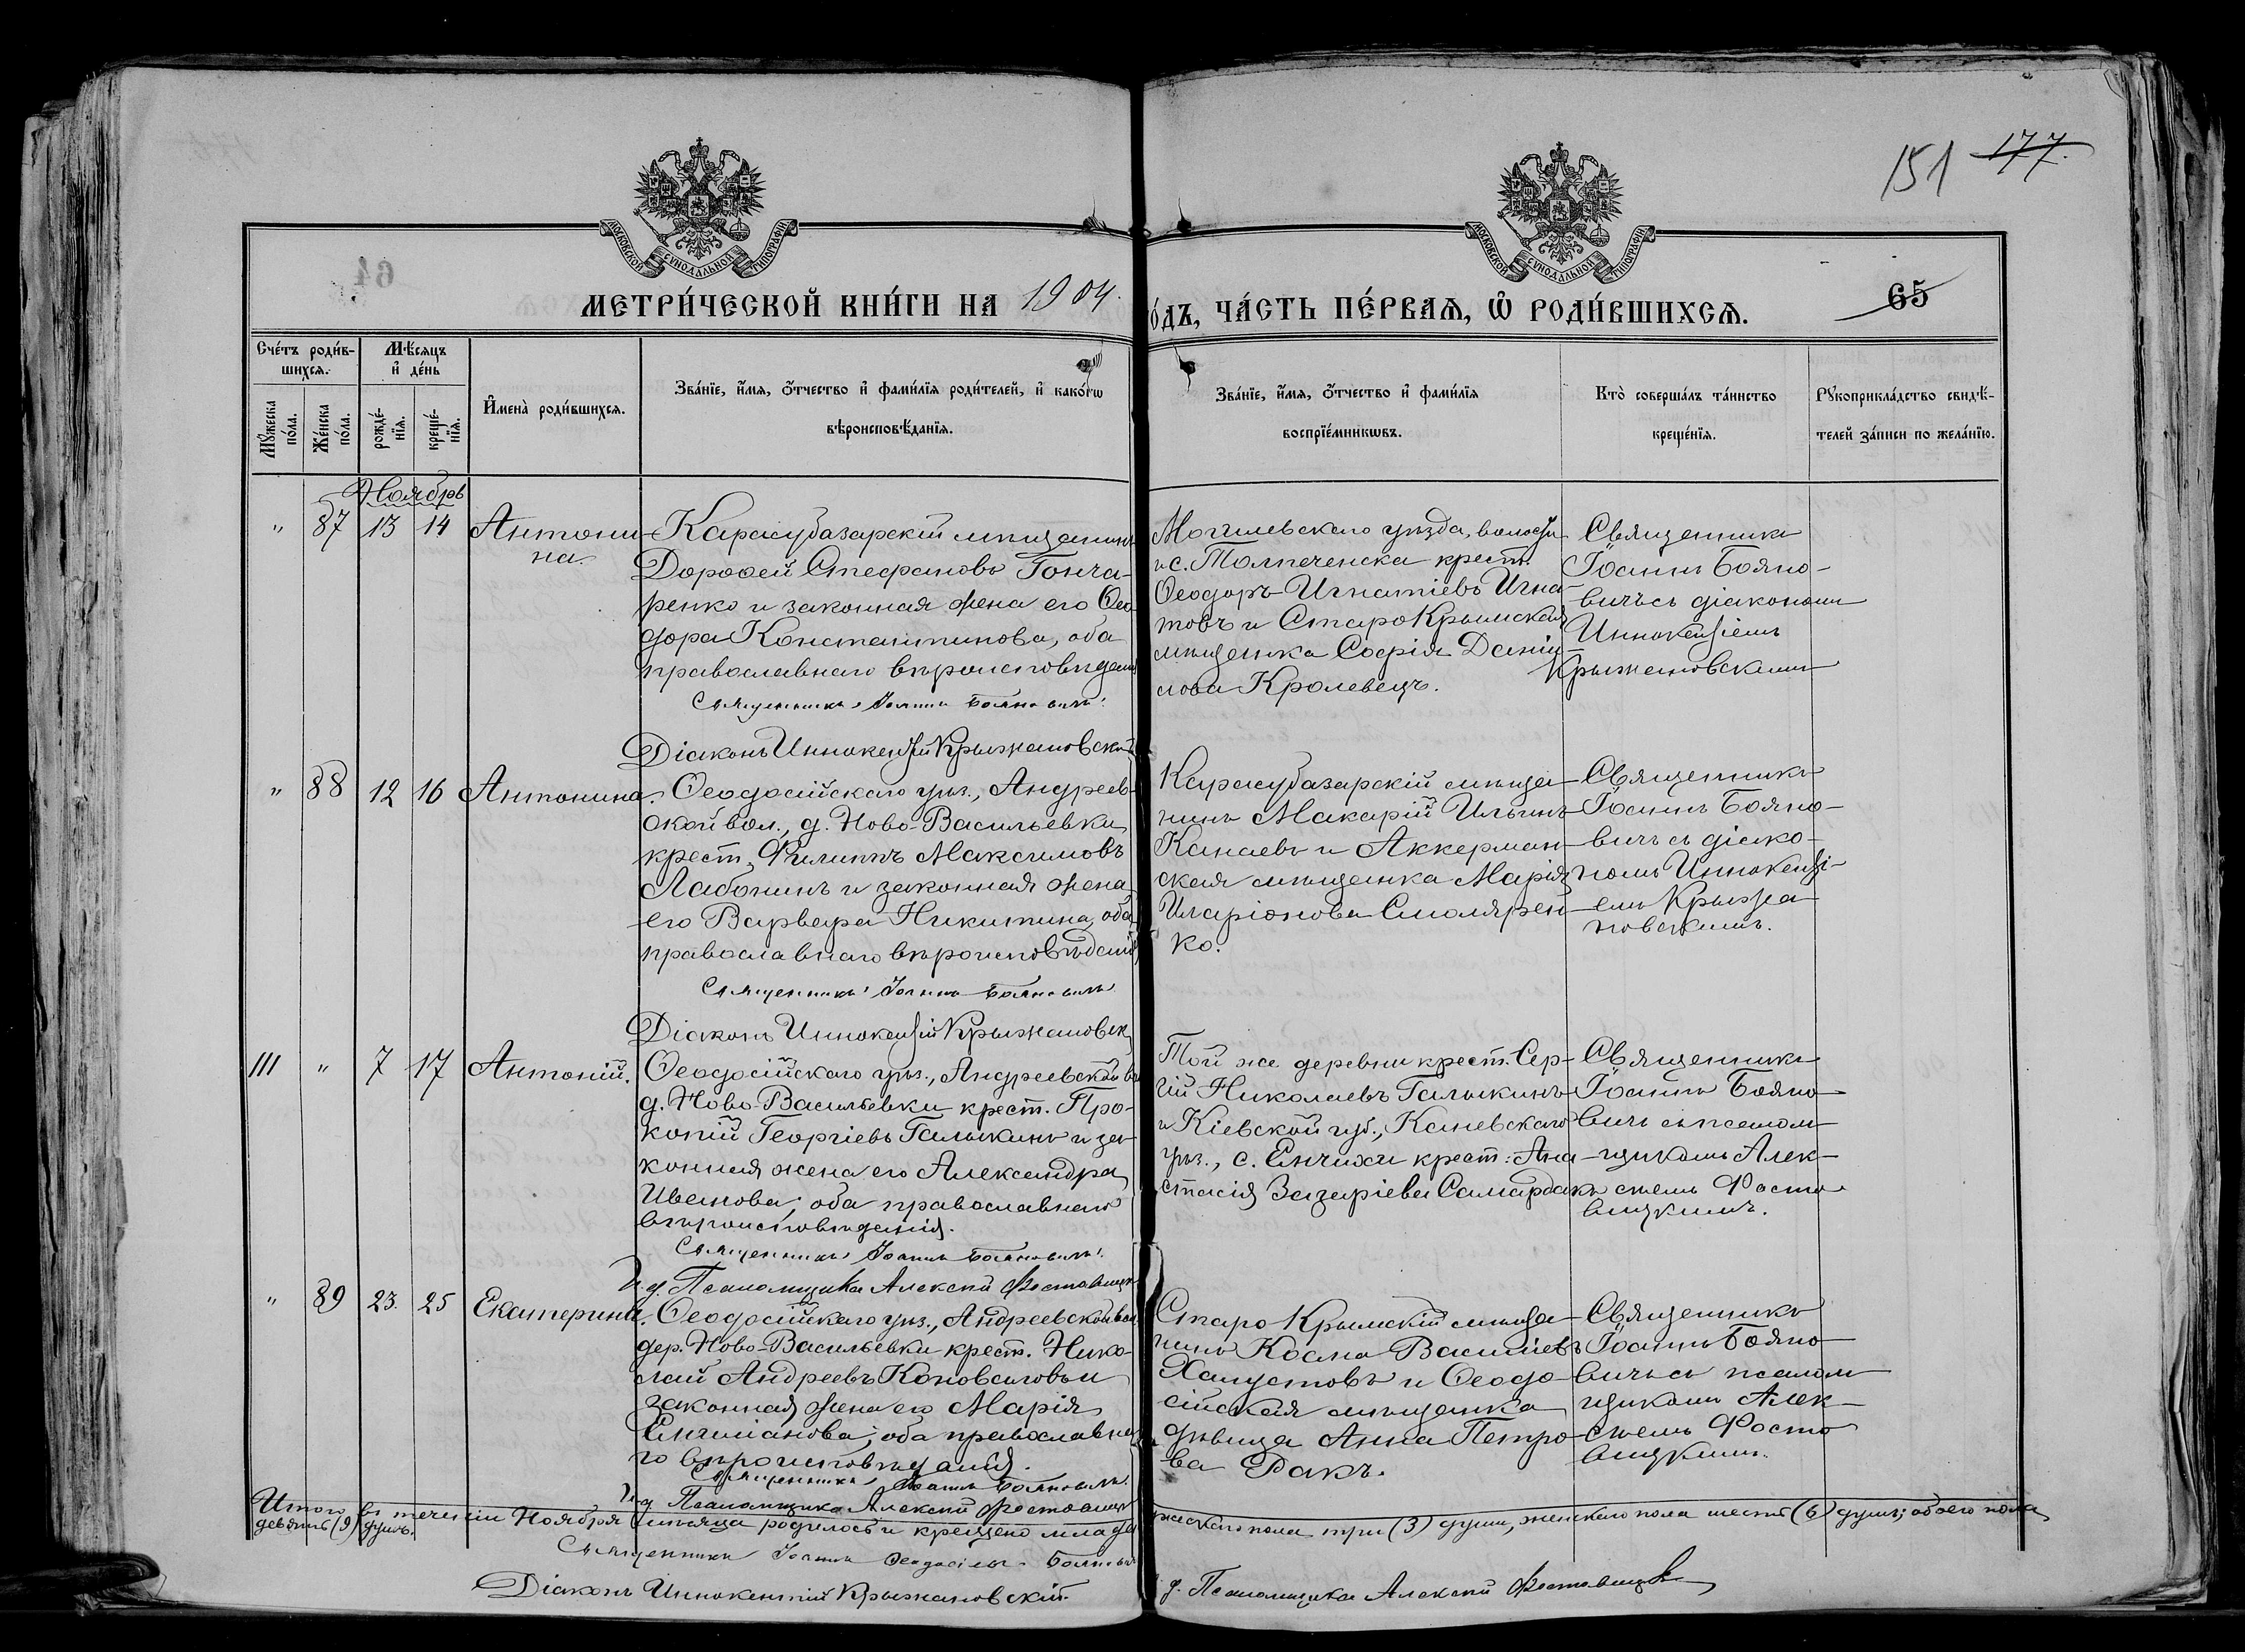 151 177.
МОСКОВСКОЙ СѴНОДАЛЬНОЙ ТИПОГРАФІИ
МОСКОВСКОЙ СѴНОДАЛЬНОЙ ТИПОГРАФІИ
МЕТРИ́ЧЕСКОЙ КНИ́ГИ НА 1904. О́ДЪ, ЧА́СТЬ ПЕ́РВАѦ, Ѡ҆ РОДИ́ВШИХСѦ. 65
Сче́тъ роди́в-
шихсѧ.
Мѣ́сѧцъ
и҆ де́нь
Мꙋ́жеска
по́ла.
Же́нска
по́ла.
рожде́-
нїѧ.
креще́-
нїѧ.
И҆мена̀ роди́вшихсѧ.
Зва́нїе, и҆́мѧ, ѻ҆́тчество и҆ фами́лїѧ роди́телей, и҆ како́гѡ
вѣроисповѣ́данїѧ.
Зва́нїе, и҆́мѧ, ѻ҆́тчество и҆ фами́лїѧ
воспрїе́мникѡвъ.
Кто̀ соверша́лъ та́инство
креще́нїѧ.
Рꙋкоприкла́дство свидѣ́-
телей за́писи по жела́нїю.
Ноябрь
" 87 13 14 Антони-
на.
Карасубазарскій мѣщанинъ
Дороѳей Стефановъ Гонча-
ренко и законная жена его Ѳео-
дора Константинова, оба
православнаго вѣроисповѣданія
Священникъ Іоаннъ Бояновичъ.
Діаконъ Иннокентій Крыжановскій
Могилевскаго уѣзда, волости
и с. крест.
Ѳеодоръ Игнатіевъ Игна-
товъ и Старо Крымская
мѣщанка Софія Дані-
лова Кролевецъ.
Священникъ
Іоаннъ Бояно-
вичъ съ діакономъ
Иннокентіемъ
Крыжановскимъ
" 88 12 16 Антонина.
Ѳеодосійскаго уѣз., Андреев-
ской вол., д. Ново-Васильевки
крест. Филиппъ Максимовъ
Лабонинъ и законная жена
его Варвара Никитина, оба
православнаго вѣроисповѣданія
Священникъ Іоаннъ Бояновичъ
Діаконъ Иннокентій Крыжановск
Карасубазарскій мѣща-
нинъ Макарій Ильинъ
Канаевъ и Аккерман-
ская мѣщанка Марія
Иларіонова Столярен-
ко.
Священникъ
Іоаннъ Бояно-
вичъ съ діако-
номъ Иннокенті-
емъ Крыжа-
новскимъ.
111 " 7 17 Антоній.
Ѳеодосійскаго уѣз., Андреевской в
д. Ново-Васильевки крест. Про-
копій Георгіевъ Галыкинъ и за-
конная жена его Александра
Иванова; оба православнаго
вѣроисповѣданія.
Священникъ Іоаннъ Бояновичъ.
И. д. Псаломщика Алексій Фостовицк
Той же деревни крест. Сер-
гій Николаевъ Галыкинъ
и Кіевской губ., Каневскаго
уѣз., с. Енчихи крест. Ана-
стасія Захаріева Самардакъ
Священникъ
Іоаннъ Бояно-
вичъ съ псалом-
щикомъ Алек-
сѣемъ Фосто-
вицкимъ.
" 89 23. 25 Екатерина.
Ѳеодосійскаго уѣз., Андреевской вол.
дер. Ново-Васильевки крест. Нико-
лай Андреевъ Коноваловъ и
законная жена его Марія
оба православна-
го вѣроисповѣданія.
Священникъ Іоаннъ Бояновичъ.
И. д. Псаломщика Алексій Фостовицк
Старо Крымскій мѣща-
нинъ Косма Василіевъ
Хапустовъ и Ѳеодо-
сійская мѣщанка
дѣвица Анна Петро-
ва Ракъ.
Священникъ
Іоаннъ Бояно-
вичъ съ псалом-
щикомъ Алек-
сѣемъ Фосто-
вицкимъ.
Итого въ теченіи Ноября мѣсяца родилось и крещено младе жескаго пола три (3) души, женскаго пола шесть (6) душъ; обоего пола
девять (9) душъ.
Священникъ Іоаннъ Ѳеодосіевъ Бояновичъ
Діаконъ Иннокентій Крыжановскій.
д. Псаломщика Алексій Фостовицкій